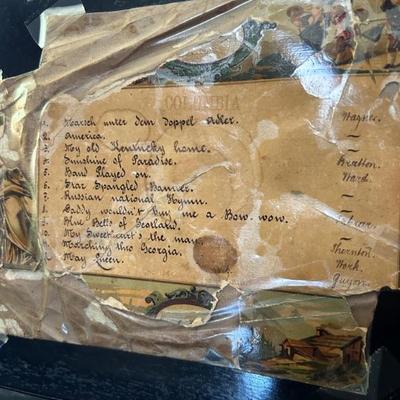 COLUMBIA
1. Marsch unter dem Doppel Adler. Wagner.
2. America. —
3. My old Kentucky home. —
4. Sunshine of Paradise. Bratton.
5. Band Played on. Ward.
6. Star Spangled Banner. —
7. Russian national Hymn. —
8. Daddy wouldn't buy me a Bow. wow.
9. Blue Bells of Scotland. —
10. My Sweetheart's the man. Thornton.
11. Marching thro Georgia. Work.
12. May Queen. Guyon.